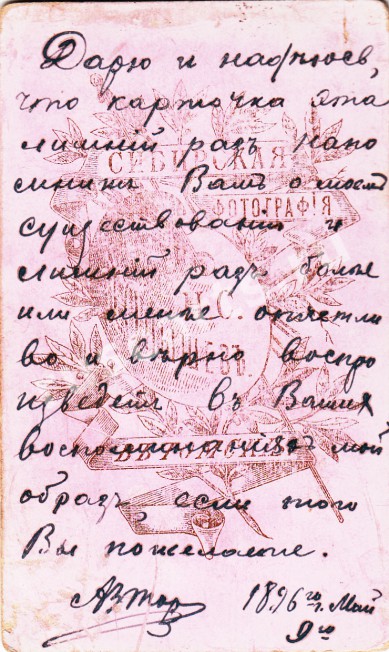 Дарю и надѣюсь,
что карточка эта
лишній разъ напо
минитъ Вамъ о моемъ
СИБИРСКАЯ
ФОТОГРАФІЯ
существованіи и
лишній разъ болѣе
или менѣе отчетли
во и вѣрно воспро
изведетъ въ Вашихъ
воспоминаніяхъ мой
образъ, если того
Вы пожелаете.
Авторъ 1896 го г. Май
9 го